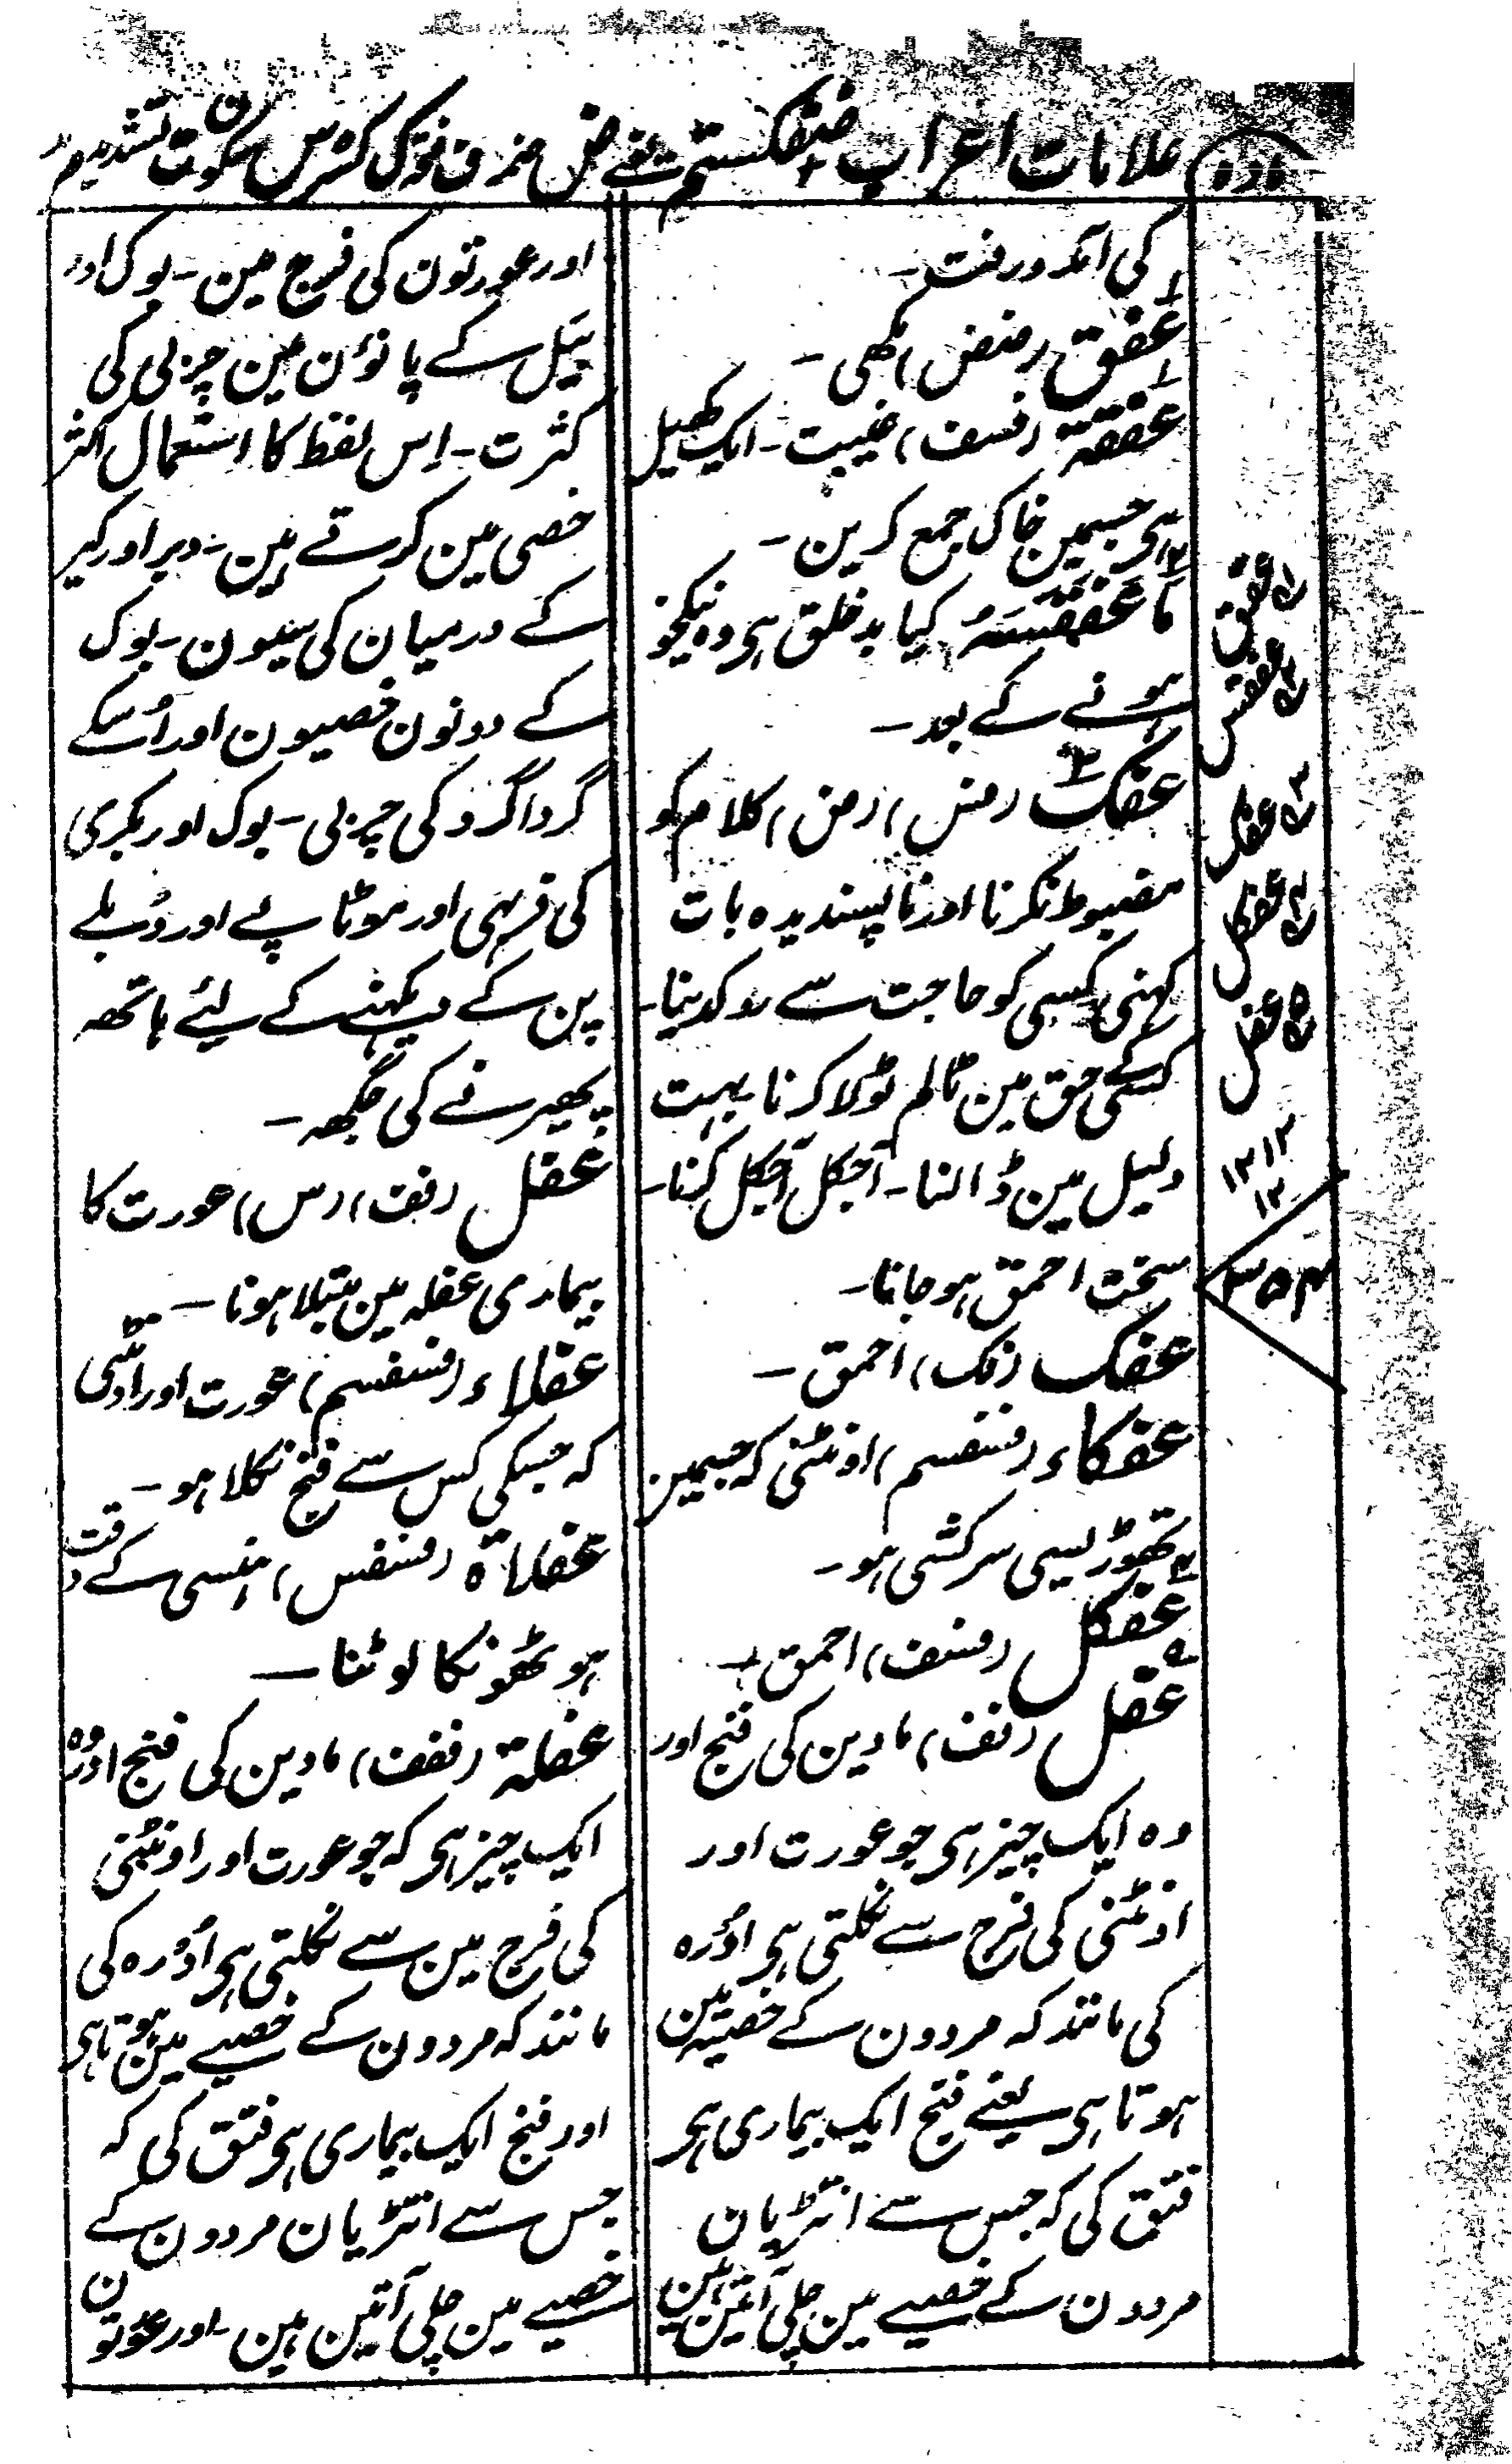 مادہ
علامات اعراب ضفکستم یعنے ض ضمہ ف فتحہ ک کسرہ س سکون ت تشدید م مد
کی آمد ورفت۔
عفق (ضض) مکھی۔
عفقة (فسف) غیبت۔ ایک کھیل
ہی جسمین خاک جمع کرین۔
ما عفقسه کیا بدخلق ہی وہ نیکخو
ہونے کے بعد۔
عفک (فس) (ض) کلام کو
مضبوط نکرنا اور ناپسندیدہ بات
کہنی کسی کو حاجت سے روکدینا۔
کسیکے حق مین ٹالم ٹولا کرنا بہت
دلیل مین ڈالنا۔ آجکل آجکل کرنا۔
سخت احمق ہوجانا۔
عفک (فک) احمق۔
عفکاء (فسفسم) اونٹنی کہ جسمین
تھوڑیسی سرکشی ہو۔
عفکل (فسف) احمق۔
عفل (فف) مادین کی فتج اور
وہ ایک چیز ہی جو عورت اور
اونٹنی کی فرج سے نکلتی ہی اوُرہ
کی مانند کہ مردون کے خصیہ مین
ہوتا ہی یعنے فتج ایک بیماری ہی
فتق کی کہ جس سے انتڑیان
مردون کے خصیے مین چلی آتین ہین
اور عورتون کی فرج مین۔ بوک اور
بَیل کے پانوُن مین چربی کی
کثرت۔ اِس لفظ کا استعمال اکثر
خصی مین کرتے ہین۔ دبر اور کیر
کے درمیان کی سیون۔ بوک
کے دونون خصیون اور اُسکے
گرداگرد کی چربی۔ بوک اور بکری
کی فربہی اور موٹاپے اور دُبلے
پن کے دیکھنے کے لیئے ہاتھہ
پھیرنے کی جگہہ۔
عفل (فف) (س) عورت کا
بیماری عفلہ مین مبتلا ہونا۔
عفلاء (فسفسم) عورت اور اونٹنی
کہ جسکی کس سے فتج نکلا ہو۔
عفلاة (فسفس) ہنسی کے وقت
ہوٹھونکا لوٹنا۔
عفلة (ففف) مادین کی فتج اور وہ
ایک چیز ہی کہ جو عورت اور اونٹنی
کی فرج مین سے نکلتی ہی اوُرہ کی
مانند کہ مردون کے خصیے مین ہوتا ہی
اور فتج ایک بیماری ہی فتق کی کہ
جس سے انتڑیان مردون کے
خصیے مین چلی آتین ہین۔ اور عورتون
۱ عفق
۲ عفقس
۳ عفک
۴ عفکل
۵ عفل
۱۲ ۱۳
۱۲
۳۵۴